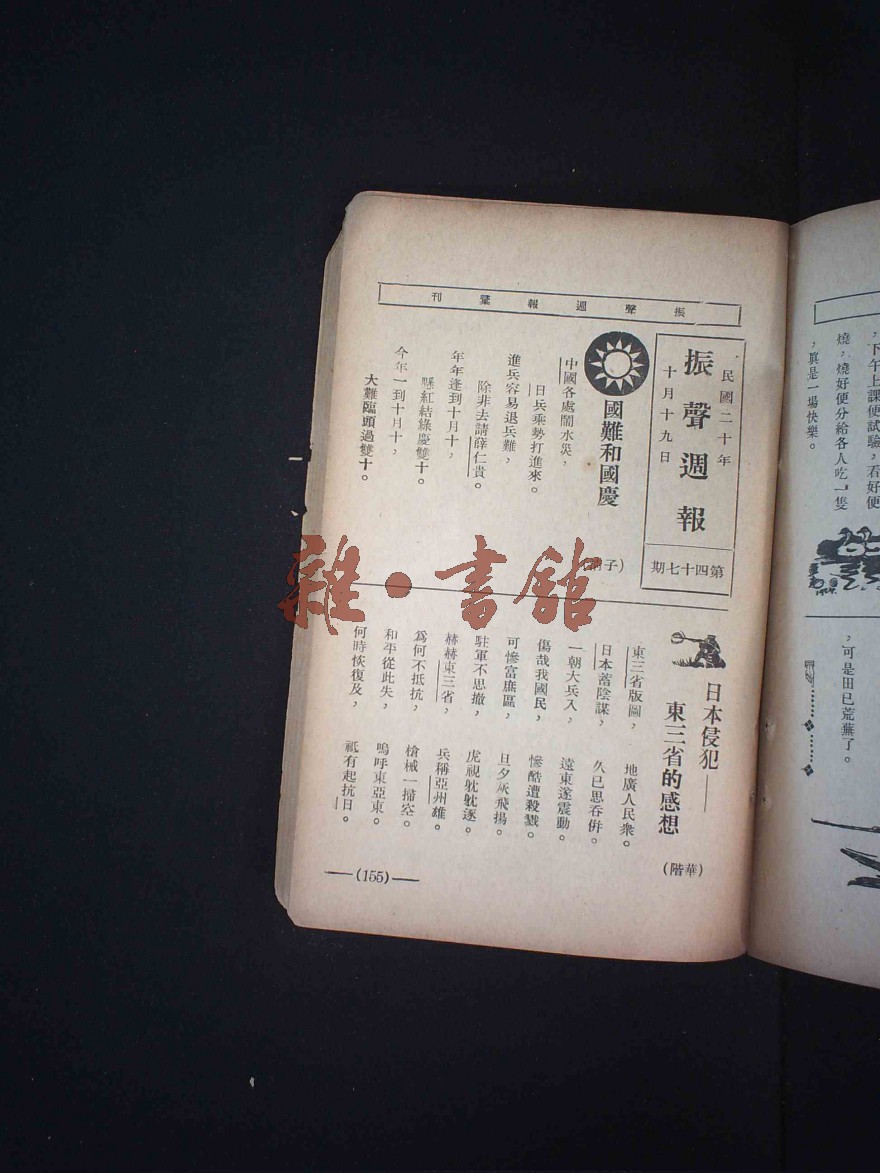 振聲週報彙刊
民國二十年
十月十九日
振聲週報
第四十七期
國難和國慶
中國各處鬧水災，
日兵乘勢打進來。
進兵容易退兵難，
除非去請薛仁貴。
年年逢到十月十，
懸紅結綵慶雙十。
今年一到十月十，
大難臨頭過雙十。
日本侵犯——
東三省的感想
（華階）
東三省版圖，　地廣人民衆。
日本蓄陰謀，　久已思吞併。
一朝大兵入，　遠東遂震動。
傷哉我國民，　慘酷遭殺戮。
可慘富庶區，　旦夕灰飛揚。
駐軍不思撤，　虎視眈眈逐。
赫赫東三省，　兵稱亞州雄。
爲何不抵抗，　槍械一掃空。
和平從此失，　嗚呼東亞東。
何時恢復及，　祇有起抗日。
—(155)—
，下午上課便試驗，看好便
燒，燒好便分給各人吃一隻
，眞是一場快樂。
，可是田已荒蕪了。
雜·書館